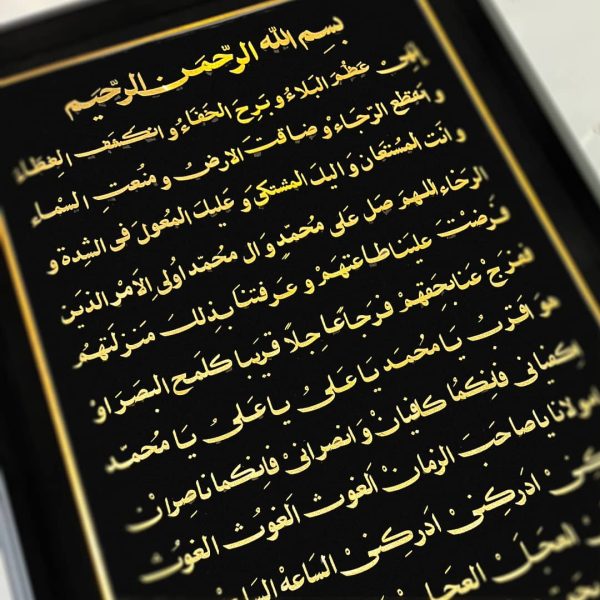 بِسمِ اللهِ الرَّحمَنِ الرَّحیمِ
إلهی عَظُمَ البَلاءُ و بَرِحَ الخَفاءُ و انکَشَفَ الغِطاءُ
و انقَطَعَ الرَّجاءُ و ضاقَتِ الارضُ و مُنِعَتِ السَّماء
و انتَ المُستَعانُ و الیكَ المُشتَکی و عَلیكَ المُعوَلُ فی الشِّدة و
الرخاءِ اللهمَ صَلِ عَلی مُحمدٍ و ال محمّد اُولی الاَمرِ الذینَ
فَرضتَ علینا طاعتَهُم و عَرفتنا بِذلِكَ مَنزلَتَهُم
ففَرِّج عَنا بحَقِهم فَرجاً عاجِلاً قریبا کلمحِ البَصَر اَو
هوَ اَقرَبُ یا مُحمَد یا عَلیُ یا عَلیُ یا مُحمّد
اِکفیانی فاِنکُما کافیان وَ انصرانی فاِنکما ناصِران
مولانا یا صاحبَ الزمان الغوث الغَوث الغَوث
ادرِکنی ادرِکنی الساعَه
العجل العجل